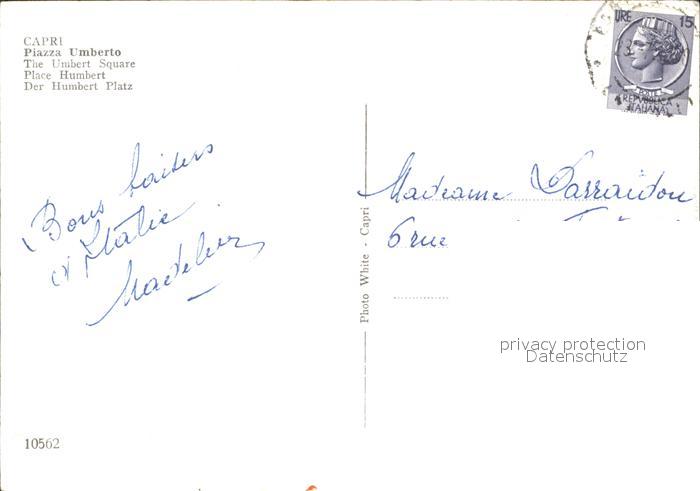 CAPRI
Piazza Umberto
The Umbert Square
Place Humbert
Der Humbert Platz
LIRE 15
POSTE
REPVBBLICA
ITALIANA
Bons baisers
d'Italie
Madame Darraidou
6 rue
Photo White - Capri
privacy protection
Datenschutz
10562